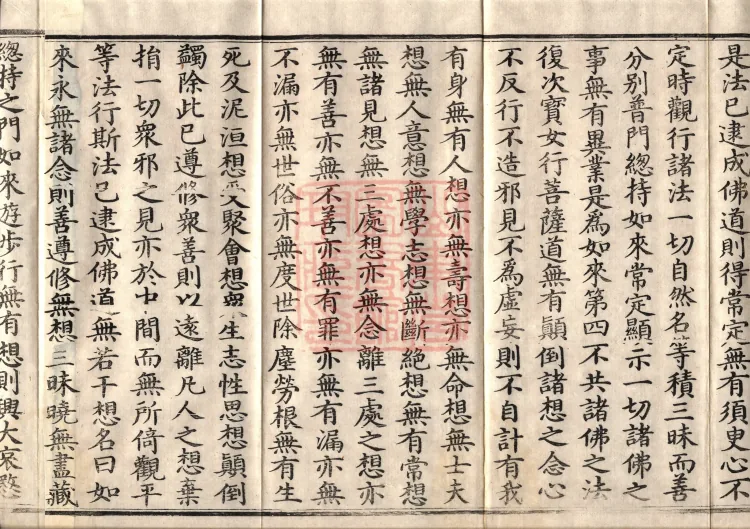 是法已逮成佛道則得常定無有須臾心不
定時觀行諸法一切自然名等積三昧而善
分別普門總持如來常定顯示一切諸佛之
事無有異業是爲如來第四不共諸佛之法
復次寶女行菩薩道無有顚倒諸想之念心
不反行不造邪見不爲虛妄則不自計有我
有身無有人想亦無壽想亦無命想無士夫
想無人意想無學志想無斷絕想無有常想
無諸見想無三處想亦無念離三處之想亦
無有善亦無不善亦無有罪亦無有漏亦無
不漏亦無世俗亦無度世除塵勞根無有生
死及泥洹想受聚會想衆生志性思想顚倒
蠲除此已遵修衆善則以遠離凡人之想棄
捐一切衆邪之見亦於中間而無所倚觀平
等法行斯法已逮成佛道無若干想名曰如
來永無諸念則善遵修無想三昧曉無盡藏
總持之門如來遊步行無有想則興大哀愍